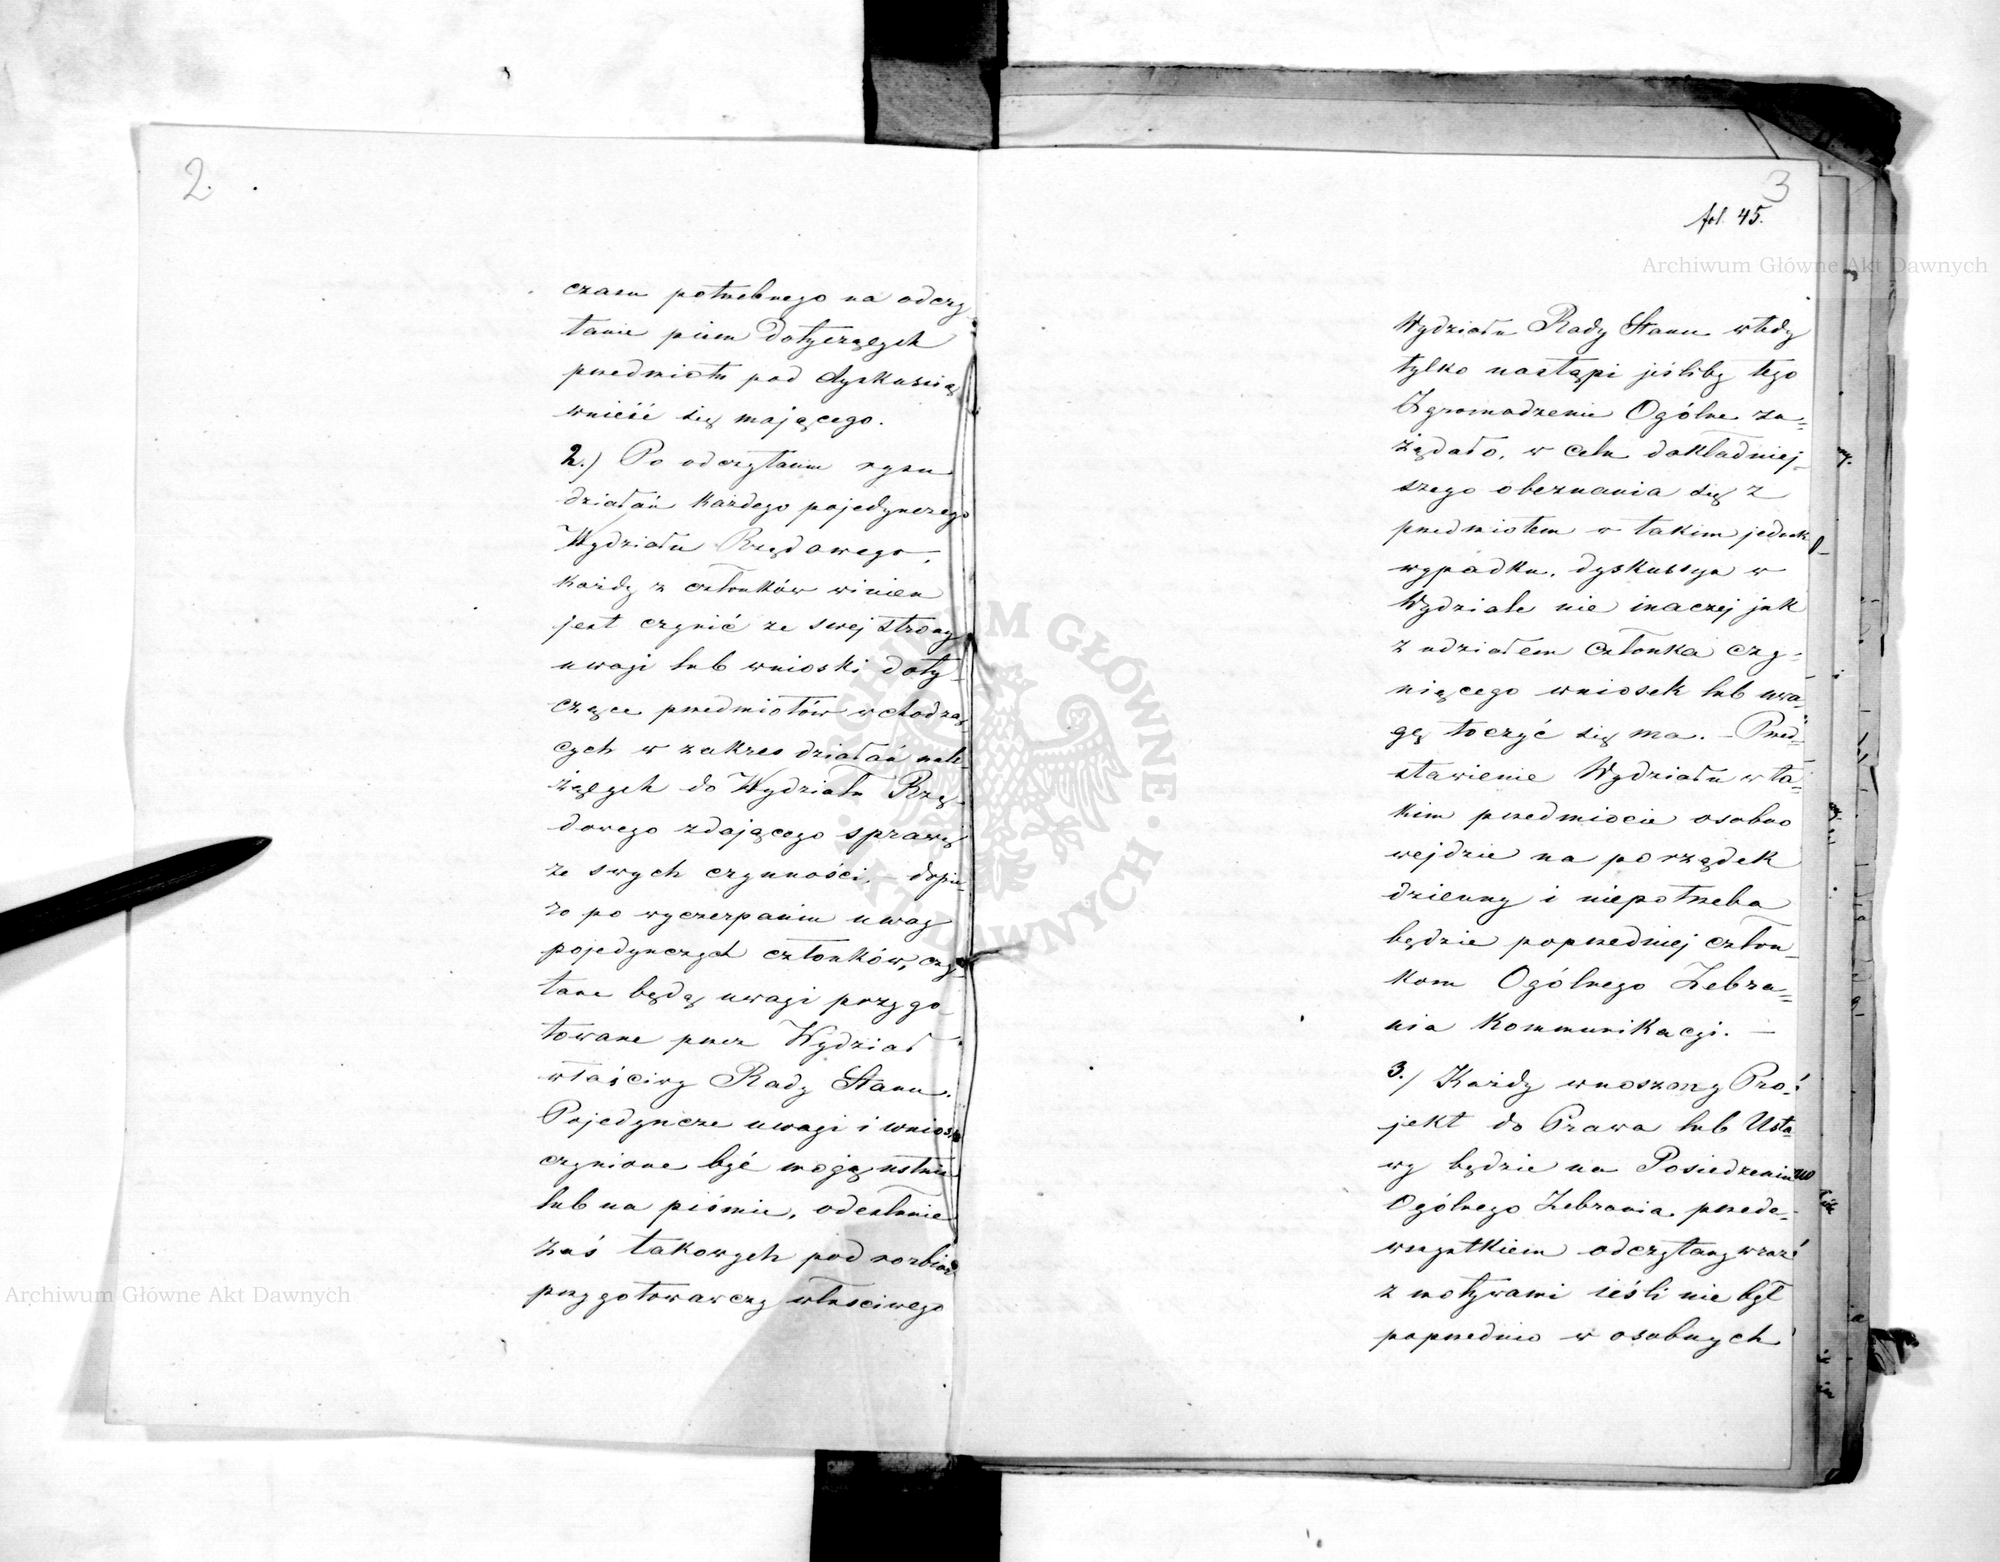 2.
czasu potrzebnego na odczy
tanie pism dotyczących
przedmiotu pod dyskusią
wnieść się mającego.
2.) Po odczytaniu rysu
działań każdego pojedynczego
Wydziału Rządowego,
każdy z członków winien
jest czynić ze swej strony
uwagi lub wnioski doty-
czące przedmiotów wchodzą
cych w zakres działań nale-
żących do Wydziału Rzą-
dowego zdającego sprawę
ze swych czynności, – dopie-
ro po wyczerpaniu uwag
pojedynczych członków, czy-
tane będą uwagi przygo-
towane przez Wydział
właściwy Rady Stanu.
Pojedyncze uwagi i wnios
czynione być mogą ustnie
lub na piśmie, odesłanie
zaś takowych pod rozbiór
przygotowawczy właściwego
3
fol. 45.
Wydziału Rady Stanu wtedy
tylko nastąpi jeśliby tego
Zgromadzenie Ogólne za=
żądało, w celu dokładniej-
szego obeznania się z
przedmiotem w takim jednak
wypadku, dyskussya w
Wydziale nie inaczej jak
z udziałem członka czy-
niącego wniosek lub uwa-
gę toczyć się ma. – Przed-
stawienie Wydziału w ta-
kim przedmiocie osobno
wejdzie na porządek
dzienny i niepotrzeba
będzie poprzedniej człon-
kom Ogólnego Zebra=
nia Kommunikacyi. —
3.) Każdy wnoszony Pro-
jekt do Prawa lub Usta-
wy będzie na Posiedzeniu
Ogólnego Zebrania przede-
wszystkiem odczytany wraz
z motywami jeśli nie był
poprzednio w osobnych
Archiwum Główne Akt Dawnych
Archiwum Główne Akt Dawnych
ARCHIWUM GŁÓWNE AKT DAWNYCH